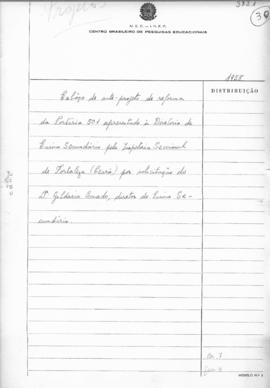 Projetos
3821
30
M. E. C. — I. N. E. P.
CENTRO BRASILEIRO DE PESQUISAS EDUCACIONAIS
1958
DISTRIBUIÇÃO
Esbôço de ante-projeto de reforma
da Portaria 501 apresentado à Diretoria de
Ensino Secundário pela Inspetoria Seccional
de Fortaleza (Ceará) por solicitação do
Dr. Gildásio Amado, diretor do Ensino Se-
cundário.
MODELO N.º 2